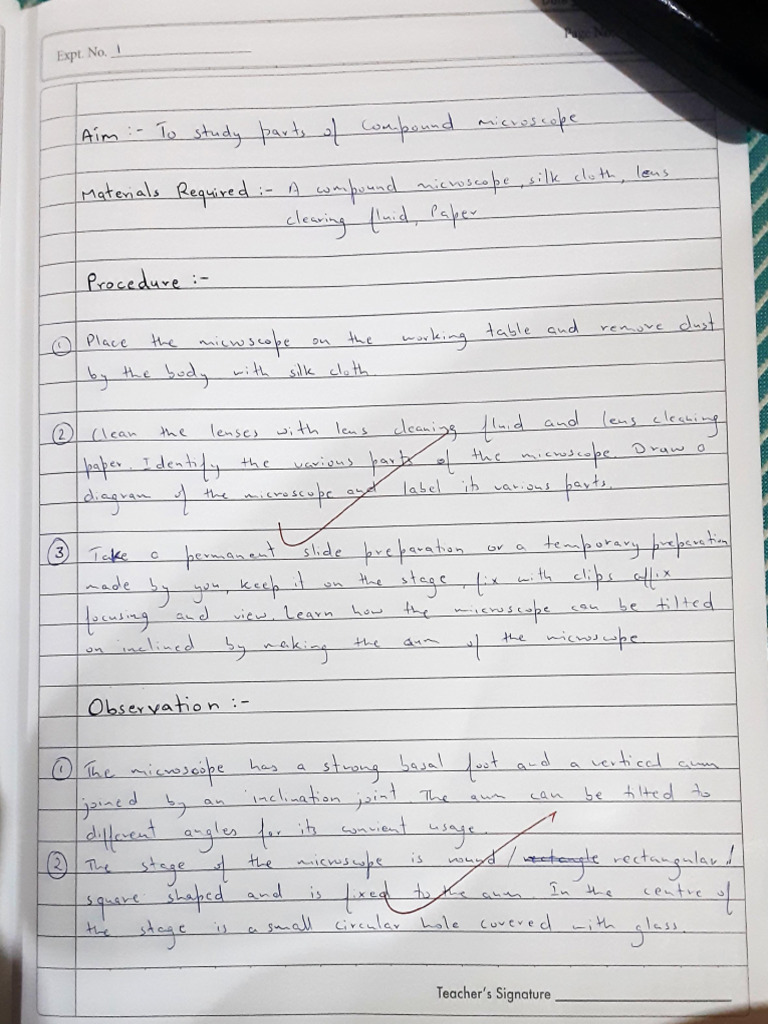 Page No.
Expt. No. 1
Aim :- To study parts of compound microscope
Materials Required :- A compound microscope, silk cloth, lens
clearing fluid, Paper
Procedure :-
① Place the microscope on the working table and remove dust
by the body with silk cloth.
② Clean the lenses with lens cleaning fluid and lens cleaning
paper. Identify the various parts of the microscope. Draw a
diagram of the microscope and label its various parts.
③ Take a permanent slide preparation or a temporary preparation
made by you, keep it on the stage, fix with clips affix
focusing and view. Learn how the microscope can be tilted
on inclined by making the aum of the microscope.
Observation :-
① The microscope has a strong basal foot and a vertical aum
joined by an inclination joint. The aum can be tilted to
different angles for its convient usage.
② The stage of the microscope is round / rectangle rectangular /
square shaped and is fixed to the aum. In the centre of
the stage is a small circular hole covered with glass.
Teacher's Signature